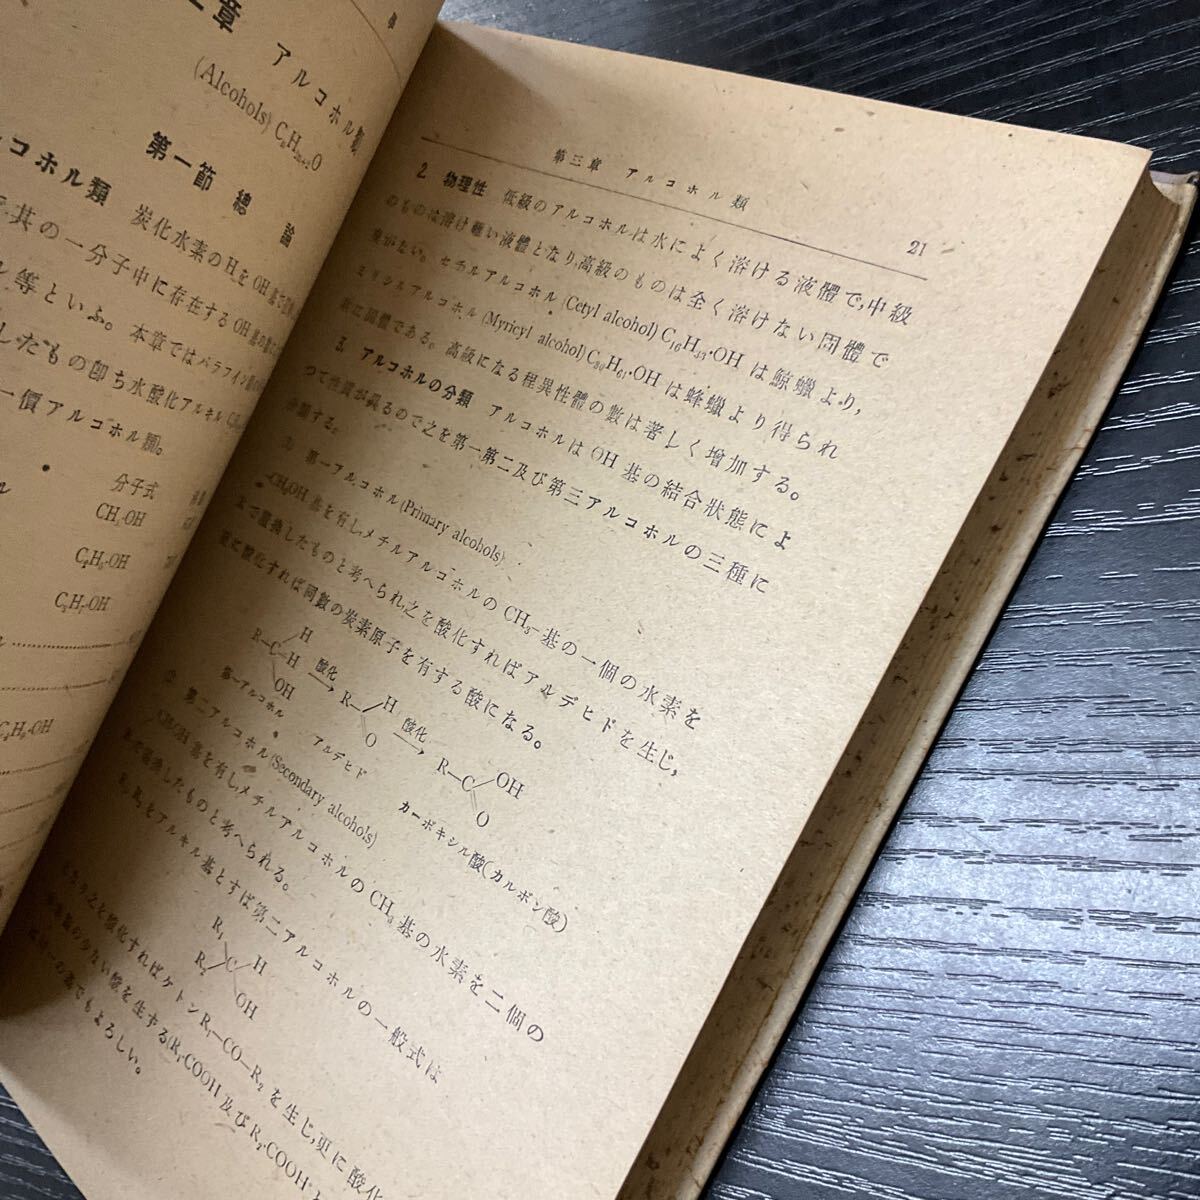 章 アルコホル類
(Alcohols) CnH2n+2O
第一節 總論
コホル類 炭化水素のHをOH基で
其の一分子中に存在するOH基の數
ル等といふ。本章ではパラフイン
したもの卽ち水酸化アルキル
一價アルコホル類。
分子式
CH3·OH
C2H5·OH
C3H7·OH
C4H9·OH
第三章 アルコホル類 21
2. 物理性 低級のアルコホルは水によく溶ける液體で,中級
のものは溶け難い液體となり,高級のものは全く溶けない固體で
臭がない。セチルアルコホル(Cetyl alcohol) C16H33·OHは鯨蠟より,
ミリシルアルコホル(Myricyl alcohol) C30H61·OHは蜂蠟より得られ
共に固體である。高級になる程異性體の數は著しく增加する。
3. アルコホルの分類 アルコホルはOH基の結合狀態によ
つて性質が異るので之を第一第二及び第三アルコホルの三種に
分類する。
① 第一アルコホル(Primary alcohols)
-CH2OH基を有し,メチルアルコホルのCH3-基の一個の水素を
Rで置換したものと考へられ,之を酸化すればアルデヒドを生じ,
更に酸化すれば同數の炭素原子を有する酸になる。
R—C H H OH 酸化 → R—C H O 酸化 → R—C OH O
第一アルコホル アルデヒド カーボキシル酸(カルボン酸)
② 第二アルコホル(Secondary alcohols)
基を有し,メチルアルコホルのCH3基の水素を二個の
Rで置換したものと考へられる。
R1, R2をアルキル基とすば第二アルコホルの一般式は
R1 R2 C H OH
之を酸化すればケトンR1—CO—R2を生じ,更に酸化
の少ない酸を生ずる(R1·COOH及びR2·COOH
の基でもよろしい。